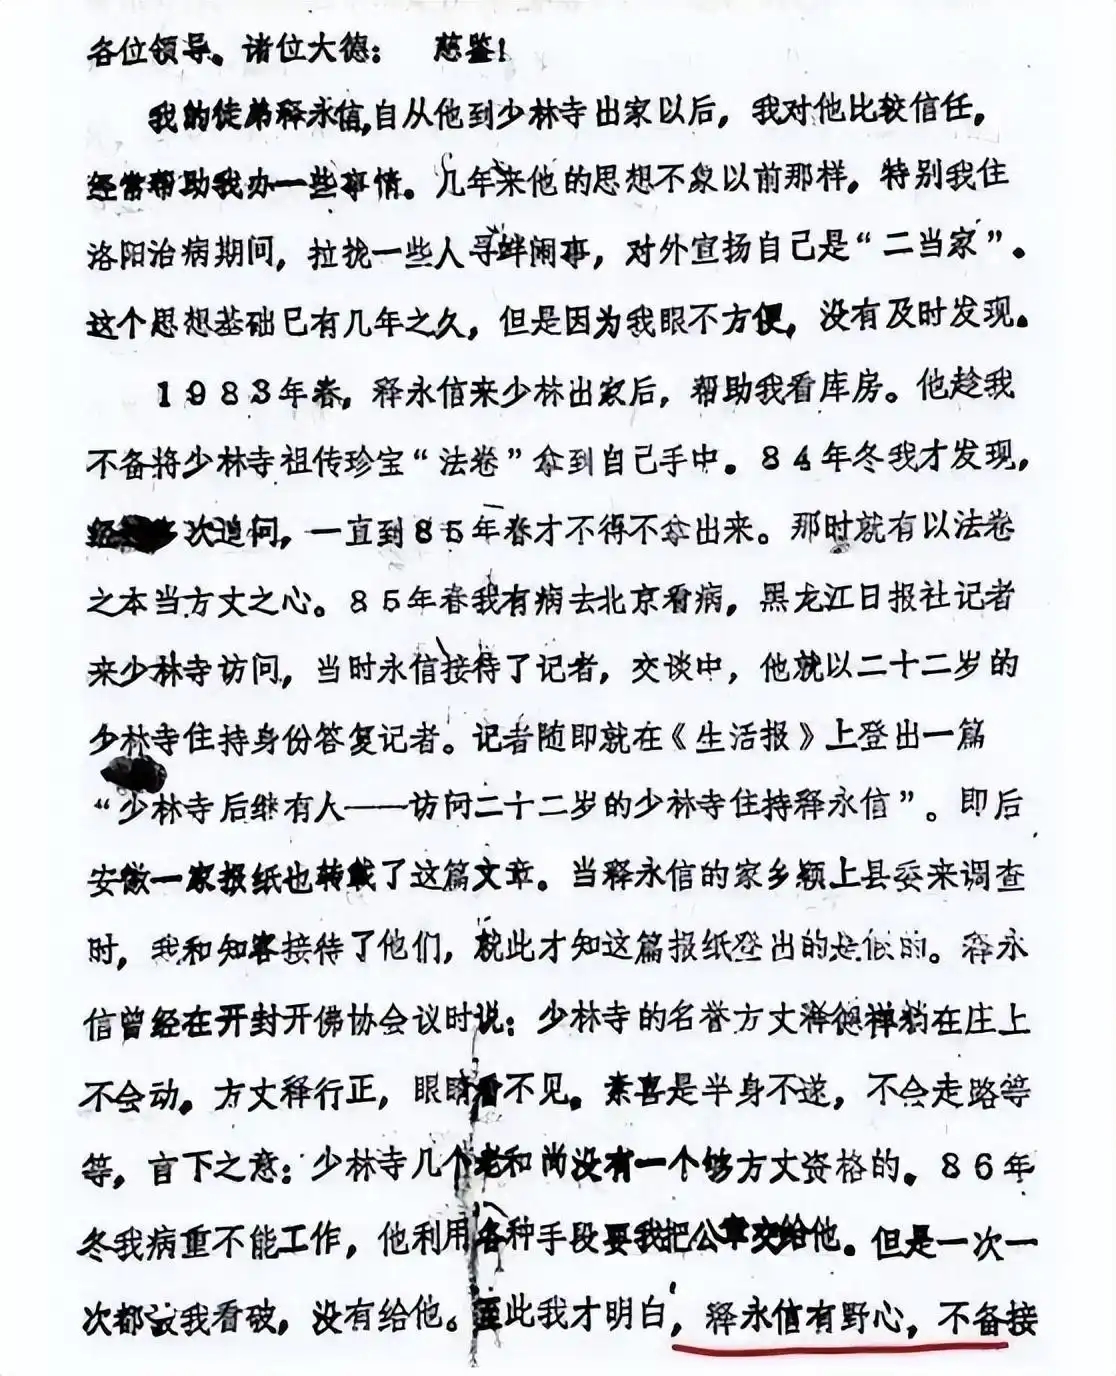 各位领导。诸位大德： 慈鉴！
我的徒弟释永信，自从他到少林寺出家以后，我对他比较信任，
经常帮助我办一些事情。几年来他的思想不象以前那样，特别我住
洛阳治病期间，拉拢一些人寻衅闹事，对外宣扬自己是“二当家”。
这个思想基础已有几年之久，但是因为我眼不方便，没有及时发现。
1983年春，释永信来少林出家后，帮助我看库房。他趁我
不备将少林寺祖传珍宝“法卷”拿到自己手中。84年冬我才发现，
经 多次追问，一直到85年春才不得不拿出来。那时就有以法卷
之本当方丈之心。85年春我有病去北京看病，黑龙江日报社记者
来少林寺访问，当时永信接待了记者，交谈中，他就以二十二岁的
少林寺住持身份答复记者。记者随即就在《生活报》上登出一篇
“少林寺后继有人——访问二十二岁的少林寺住持释永信”。即后
安徽一家报纸也转载了这篇文章。当释永信的家乡颍上县委来调查
时，我和知客接待了他们，就此才知这篇报纸登出的是假的。释永
信曾经在开封开佛协会议时说：少林寺的名誉方丈释德禅躺在庄上
不会动。方丈释行正，眼睛看不见。素喜是半身不遂，不会走路等
等，言下之意：少林寺几个老和尚没有一个够方丈资格的。86年
冬我病重不能工作，他利用各种手段要我把公章交给他。但是一次一
次都被我看破，没有给他。至此我才明白，释永信有野心，不备接